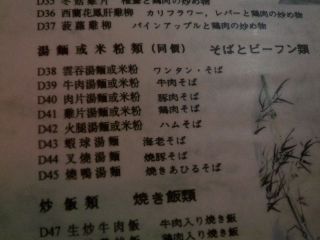 D36 西蘭花鳳肝雞柳 カリフラワー、レバーと鶏肉の炒め物
D37 菠蘿雞柳 パインアップルと鶏肉の炒め物
湯麵或米粉類（同價） そばとビーフン類
D38 雲呑湯麵或米粉 ワンタン・そば
D39 牛肉湯麵或米粉 牛肉そば
D40 肉片湯麵或米粉 豚肉そば
D41 雞片湯麵或米粉 鶏肉そば
D42 火腿湯麵或米粉 ハムそば
D43 蝦球湯麵 海老そば
D44 叉燒湯麵 焼豚そば
D45 燒鴨湯麵 焼きあひるそば
炒飯類 焼き飯類
D47 生炒牛肉飯 牛肉入り焼き飯
鶏肉入り焼き飯